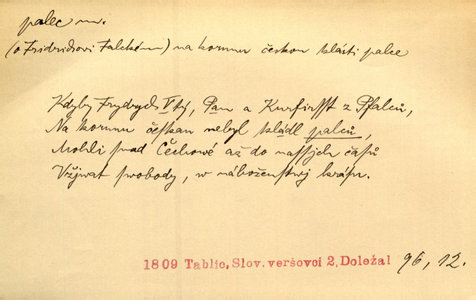 palec m.
(o Fridrichovi Falckém) na korunu českou klásti palce
Kdyby Frydrych Vtý, Pan a Kurfirsst z Pfalcu,
Na korunu česskau nebyl kládl palců,
Mohli snad Čechowé až do nassjch časů
Vžjwat swobody, w náboženstwj krásu.
1809 Tablic, Slov. veršovci 2, Doležal 96, 12.